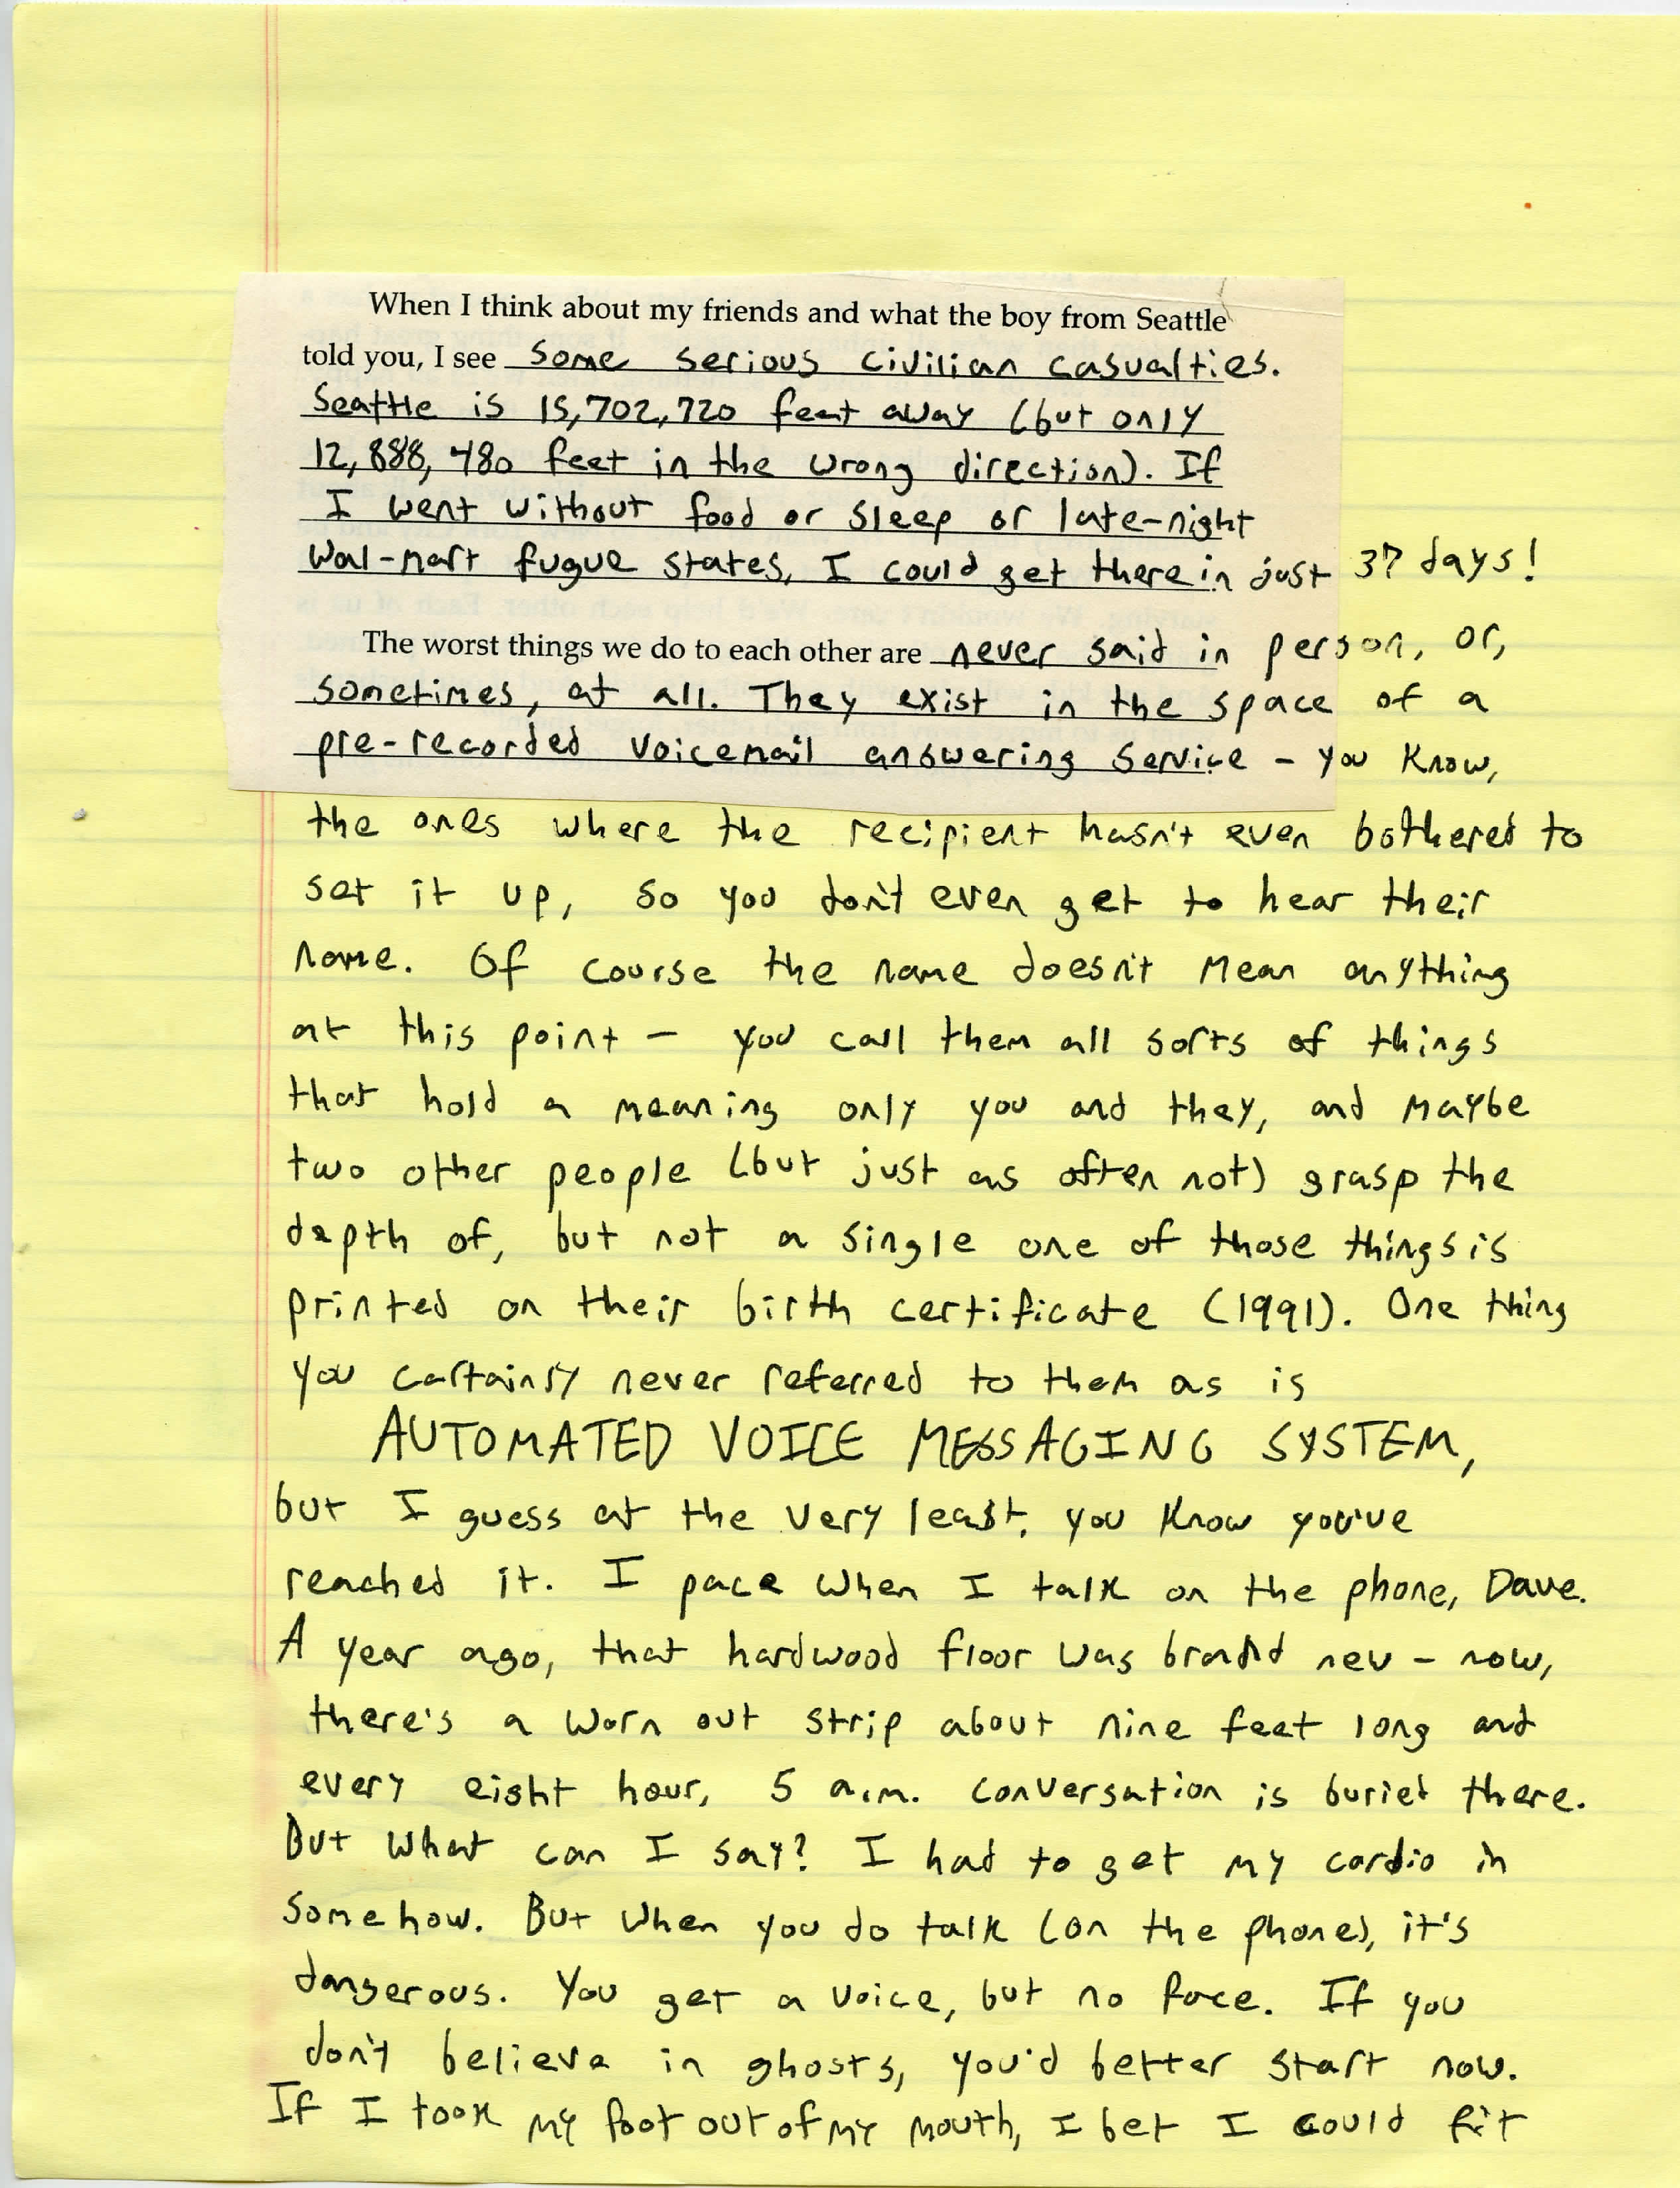 When I think about my friends and what the boy from Seattle
told you, I see some serious civilian casualties.
Seattle is 15,702,720 feet away (but only
12,888,480 feet in the wrong direction). If
I went without food or sleep or late-night
Wal-mart fugue states, I could get there in just 37 days!
The worst things we do to each other are never said in person, or,
sometimes, at all. They exist in the space of a
pre-recorded voicemail answering service - you know,
the ones where the recipient hasn't even bothered to
set it up, so you don't even get to hear their
name. Of course the name doesn't mean anything
at this point - you call them all sorts of things
that hold a meaning only you and they, and maybe
two other people (but just as often not) grasp the
depth of, but not a single one of those things is
printed on their birth certificate (1991). One thing
you certainly never referred to them as is
AUTOMATED VOICE MESSAGING SYSTEM,
but I guess at the very least, you know you've
reached it. I pace when I talk on the phone, Dave.
A year ago, that hardwood floor was brand new - now,
there's a worn out strip about nine feet long and
every eight hour, 5 a.m. conversation is buried there.
But what can I say? I had to get my cardio in
somehow. But when you do talk (on the phone), it's
dangerous. You get a voice, but no face. If you
don't believe in ghosts, you'd better start now.
If I took my foot out of my mouth, I bet I could fit